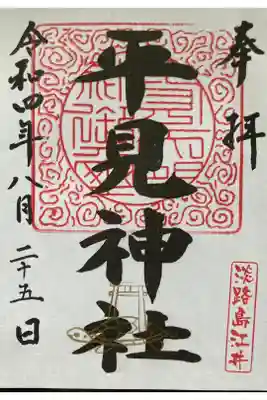 奉拝
平見神社
令和四年八月二十五日
淡路島江井